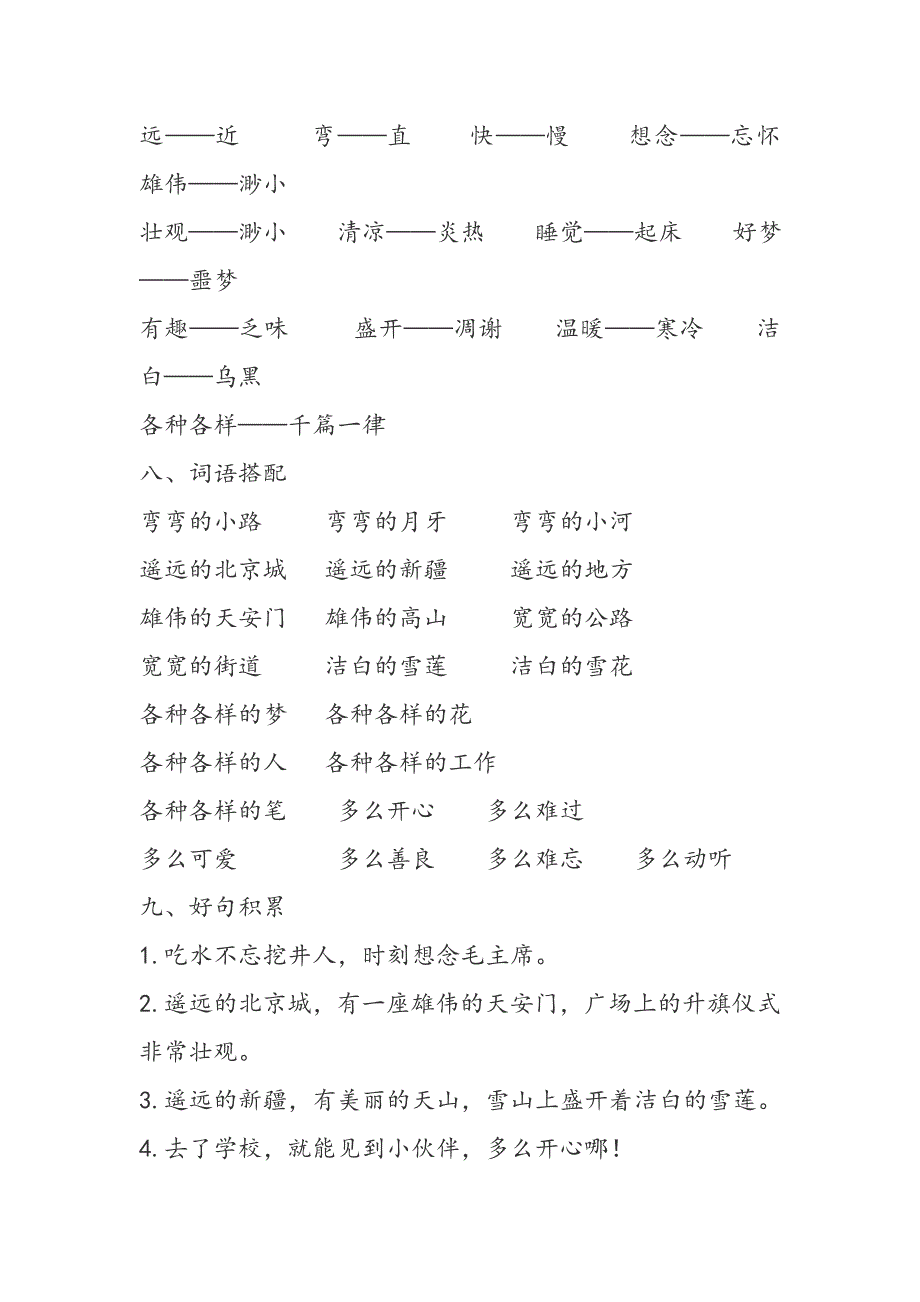 远——近 弯——直 快——慢 想念——忘怀
雄伟——渺小
壮观——渺小 清凉——炎热 睡觉——起床 好梦
——噩梦
有趣——乏味 盛开——凋谢 温暖——寒冷 洁
白——乌黑
各种各样——千篇一律
八、词语搭配
弯弯的小路 弯弯的月牙 弯弯的小河
遥远的北京城 遥远的新疆 遥远的地方
雄伟的天安门 雄伟的高山 宽宽的公路
宽宽的街道 洁白的雪莲 洁白的雪花
各种各样的梦 各种各样的花
各种各样的人 各种各样的工作
各种各样的笔 多么开心 多么难过
多么可爱 多么善良 多么难忘 多么动听
九、好句积累
1.吃水不忘挖井人，时刻想念毛主席。
2.遥远的北京城，有一座雄伟的天安门，广场上的升旗仪式
非常壮观。
3.遥远的新疆，有美丽的天山，雪山上盛开着洁白的雪莲。
4.去了学校，就能见到小伙伴，多么开心哪！